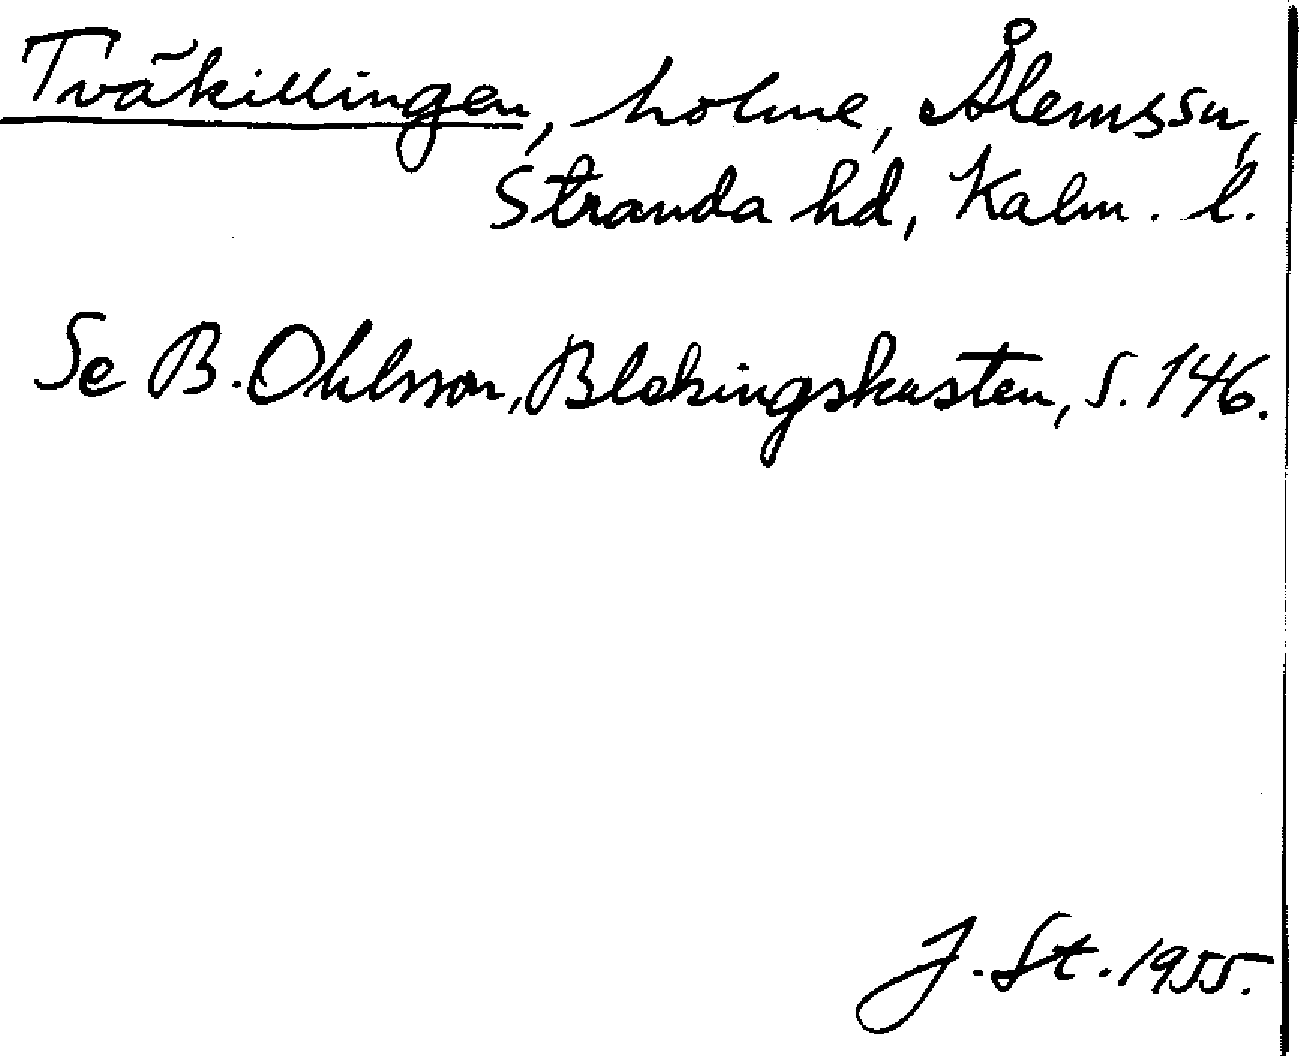 Tvåkillingen, holme, Ålemssn,
Stranda hd, Kalm. l.
Se B. Ohlsson, Blekingskusten, s. 146.
J. St. 1955.